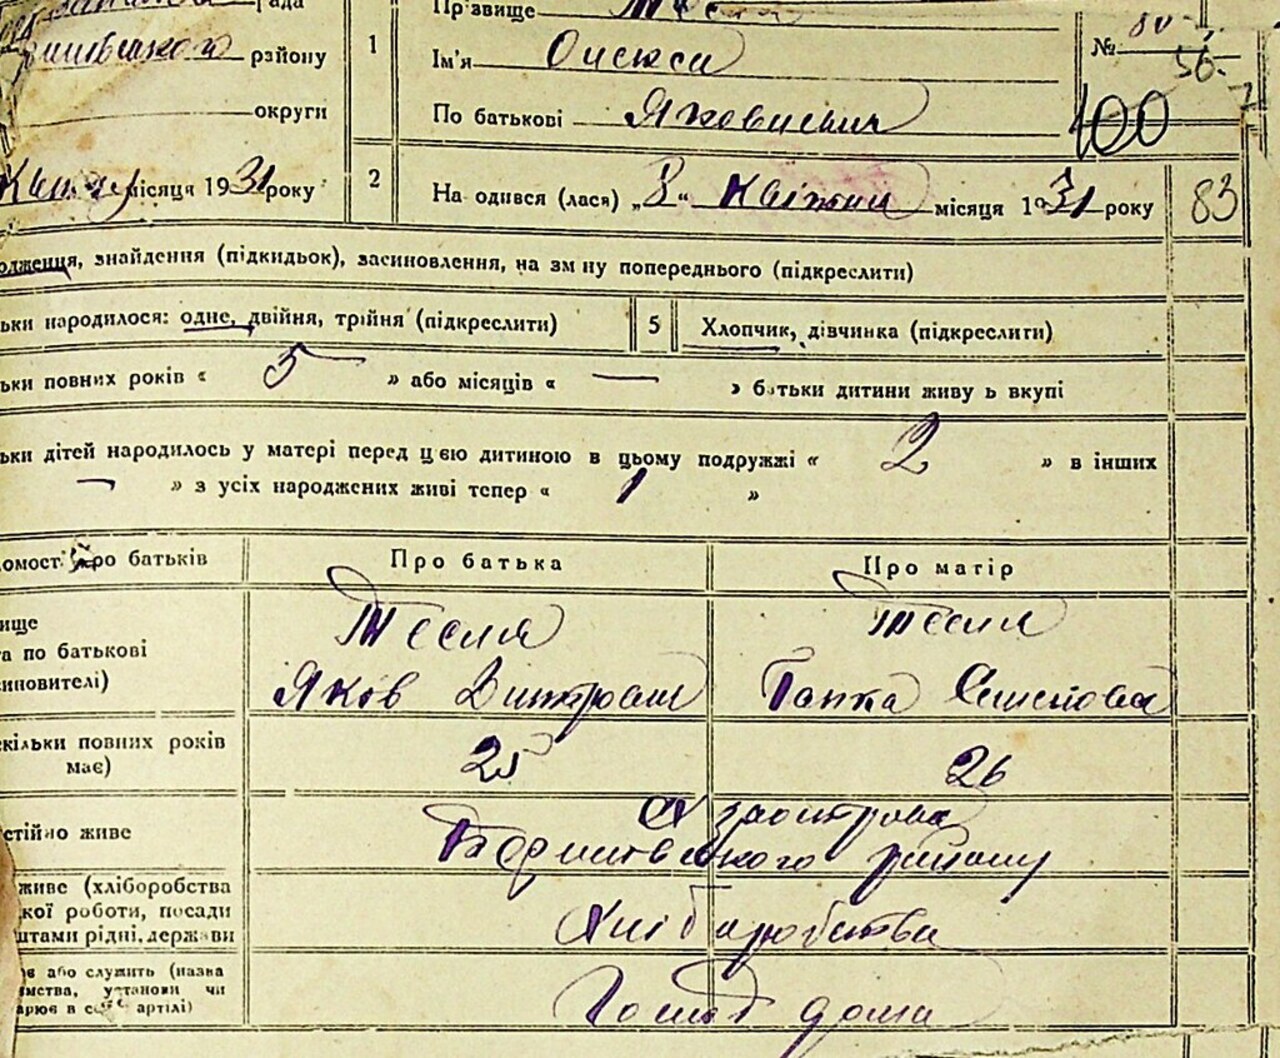 рада
района району
округи
1
Пр звище Тесля
Ім'я Олекса
По батькові Якович
№ 80
56
100
Квітня місяця 1931 року
2
На одився (лася) „8“ Квітня місяця 1931 року
83
одження, знайдення (підкидьок), засиновлення, на зм ну попереднього (підкреслити)
ьки народилося: одне, двійня, трійня (підкреслити)
5
Хлопчик, дівчинка (підкреслити)
ьки повних років « 5 » або місяців « — » батьки дитини живу ь вкупі
ьки дітей народилось у матері перед цією дитиною в цьому подружжі « 2 » в інших
— » з усіх народжених живі тепер « 1 »
омост про батьків
Про батька
Про матір
ище
а по батькові
иновителі)
Тесля
Яків Дмитрович
Тесля
Ганка Семенова
скільки повних років
має)
25
26
стійно живе
С Заострова
району
живе (хліборобства
кої роботи, посади
штами рідні, держави
Хліборобства
є або служить (назва
мства, установи чи
арює в артілі)
Господ дома